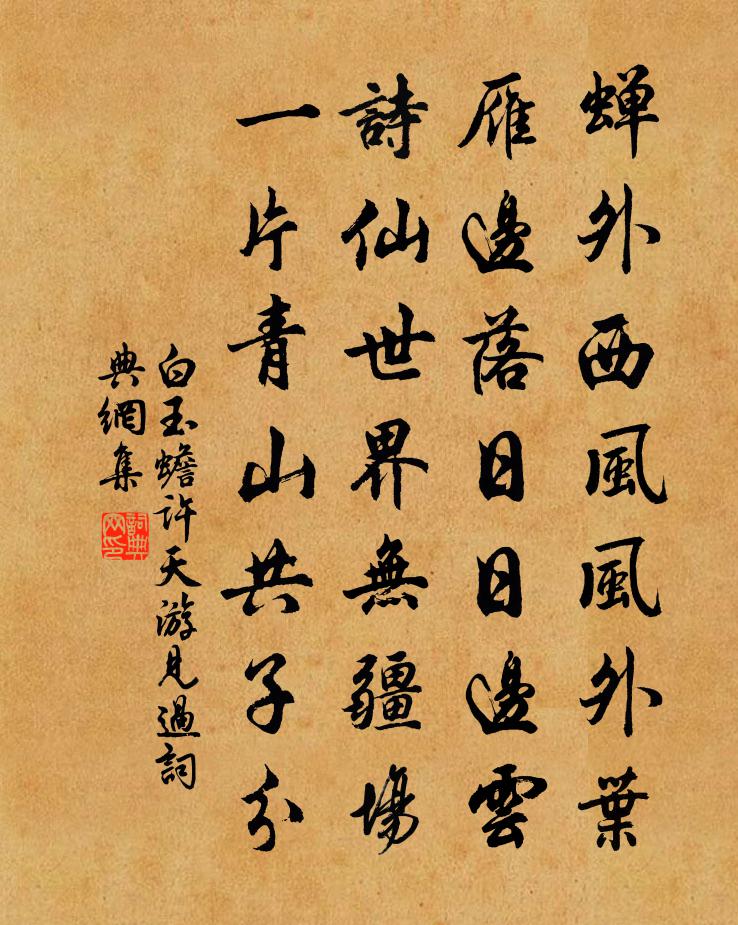 蝉外西風風外葉
雁邊落日日邊雲
詩仙世界無疆場
一片青山共子分
白玉蟾许天游見過詞
典網集
詞典
网印